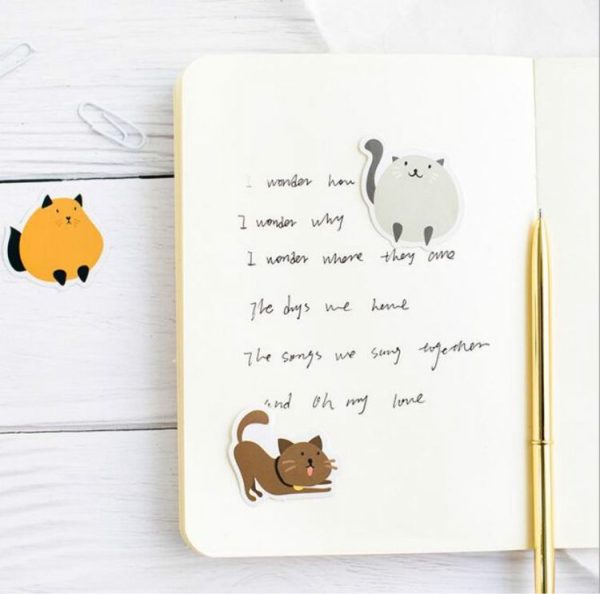 I wonder how
I wonder why
I wonder where they are
The days we have
The songs we sung together
and oh my love